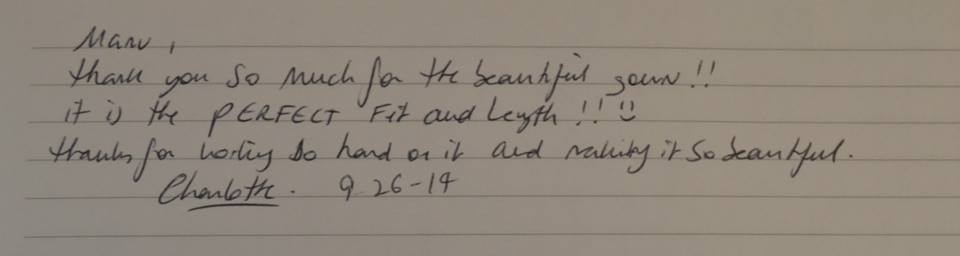 Manv,
thank you so much for the beautiful gown!!
it is the PERFECT Fit and Length!! ☺
thanks for working so hard on it and making it so beautiful.
Charlotte. 9-26-14